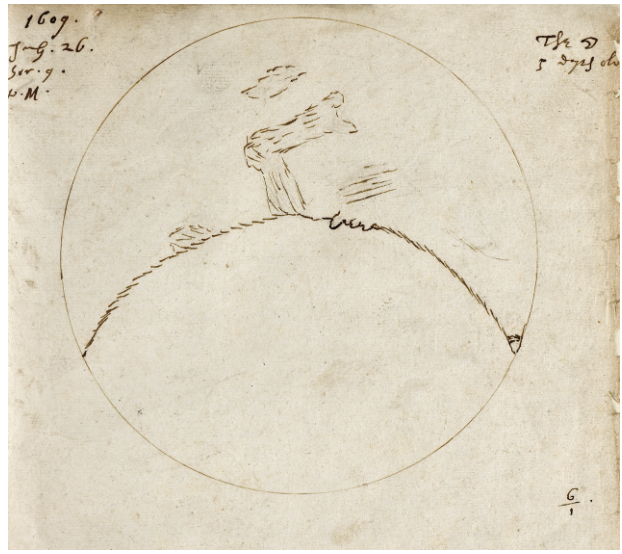 1609.
July. 26.
hor. 9.
p. M.
The ☽
5 dayes ol
6
1